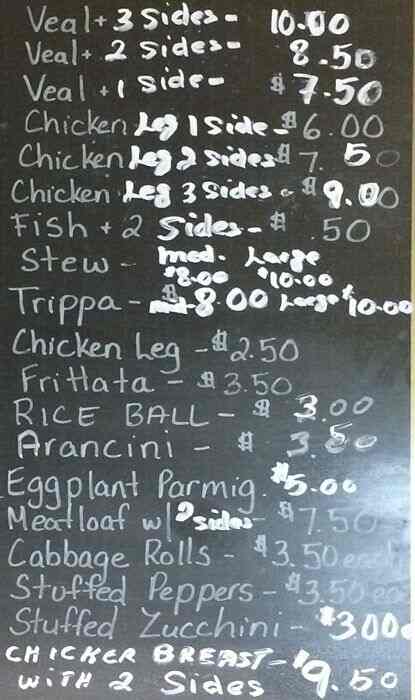 Veal + 3 Sides - 10.00
Veal + 2 Sides - 8.50
Veal + 1 Side - $7.50
Chicken Leg 1 Side - $6.00
Chicken Leg 2 sides $7.50
Chicken Leg 3 Sides - $9.00
Fish + 2 Sides - $ .50
Stew - med. Large
$8.00 $10.00
Trippa - med $8.00 Large $10.00
Chicken Leg - $2.50
Frittata - $3.50
RICE BALL - $3.00
Arancini - $
Eggplant Parmig. $5.00
Meatloaf w/ 2 sides - $7.50
Cabbage Rolls - $3.50 each
Stuffed Peppers - $3.50 ea
Stuffed Zucchini - $3.00
CHICKER BREAST - $9.50
WITH 2 Sides